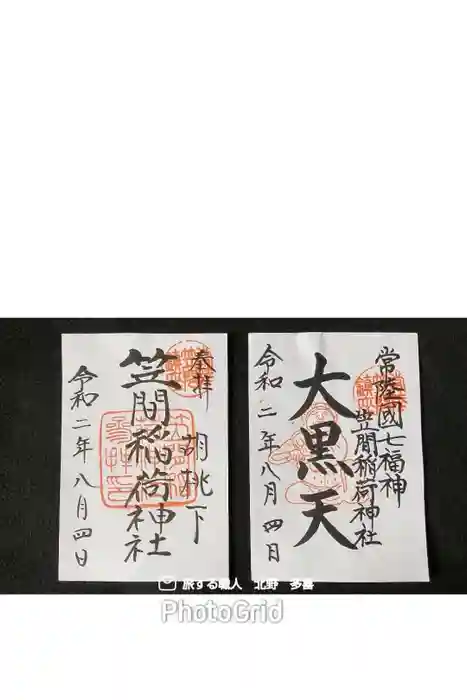 奉拝
胡桃下
笠間稲荷神社
令和二年八月四日
常陸國七福神
笠間稲荷神社
大黒天
令和二年八月四日
旅する職人 北野 多喜
PhotoGrid